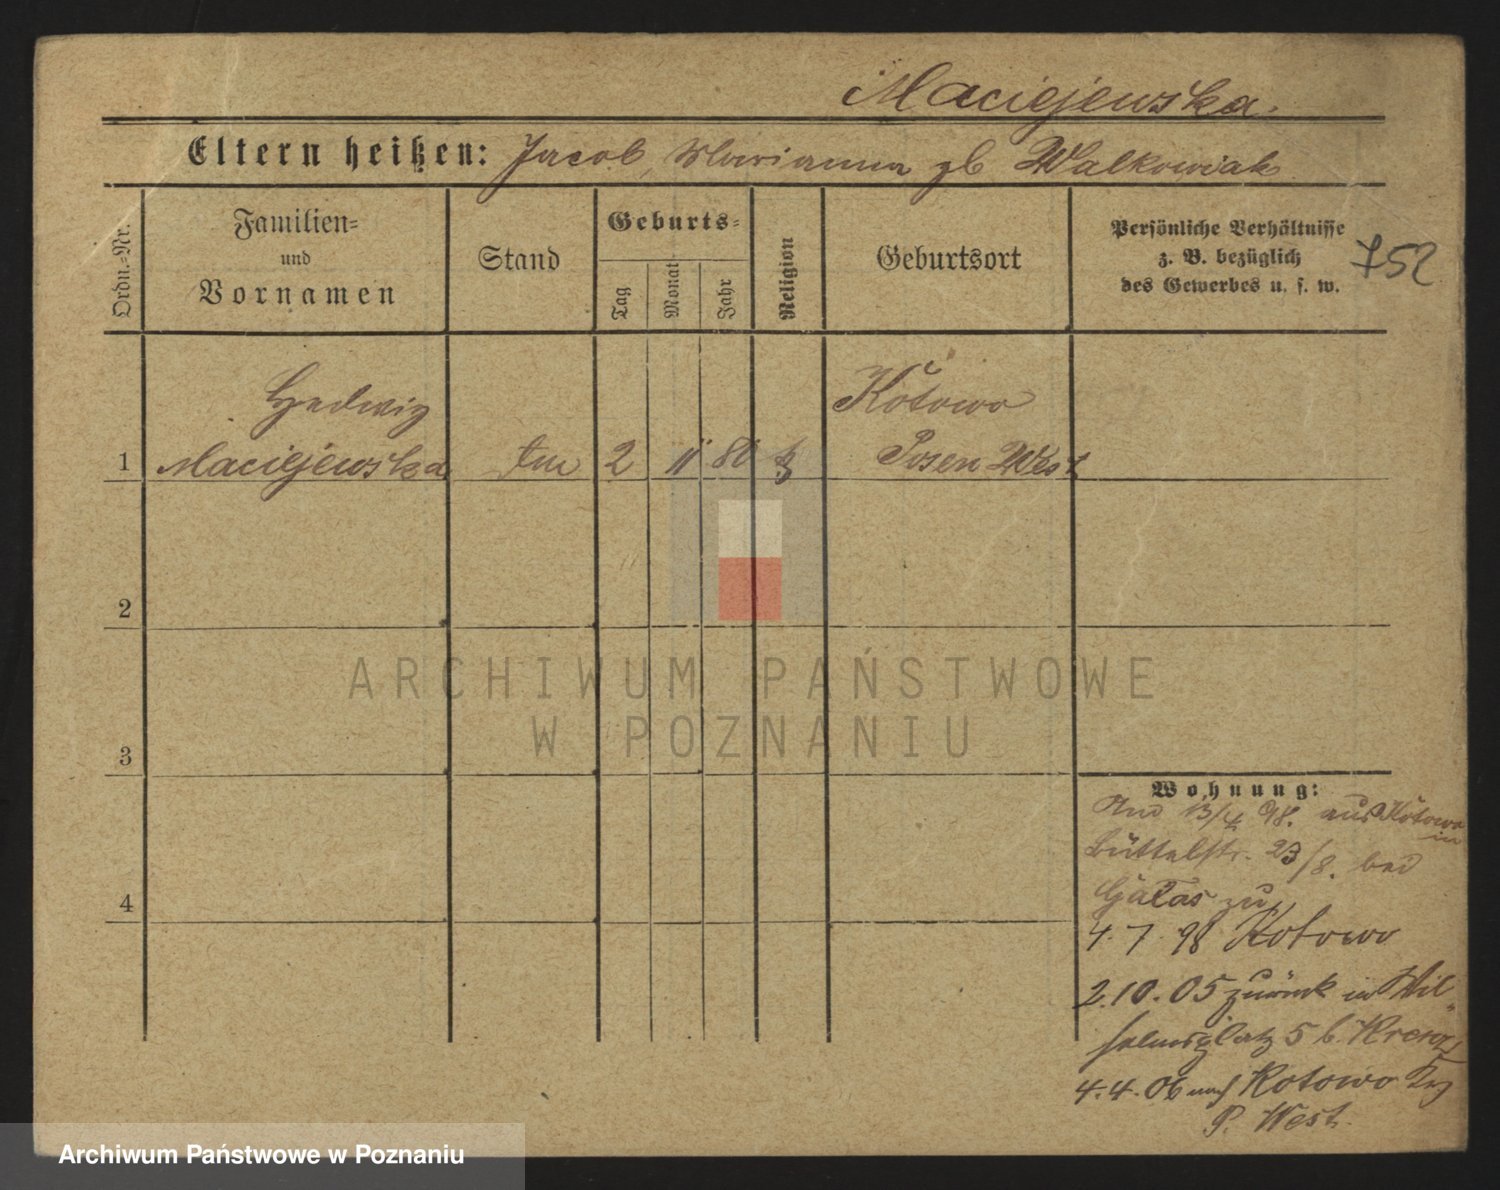 Maciejewska.
Eltern heißen: Jacob, Marianna gb Walkowiak
Ordn.-Nr.
Familien-
und
Vornamen
Stand
Geburts-
Tag
Monat
Jahr
Religion
Geburtsort
Persönliche Verhältnisse
z. B. bezüglich
des Gewerbes u. s. w.
752
Hedwig
Kotowo
1 Maciejewska 2 11 80 Posen West
2
3
4
ARCHIWUM PAŃSTWOWE
W POZNANIU
Wohnung:
13/4 98. aus Kotowo
in
Büttelstr. 23/8. bei
zu
4.7.98 Kotowo
2.10.05 zurück in Wil-
helmsplatz 5 b.
4.4.06 nach Kotowo
P. West.
Archiwum Państwowe w Poznaniu